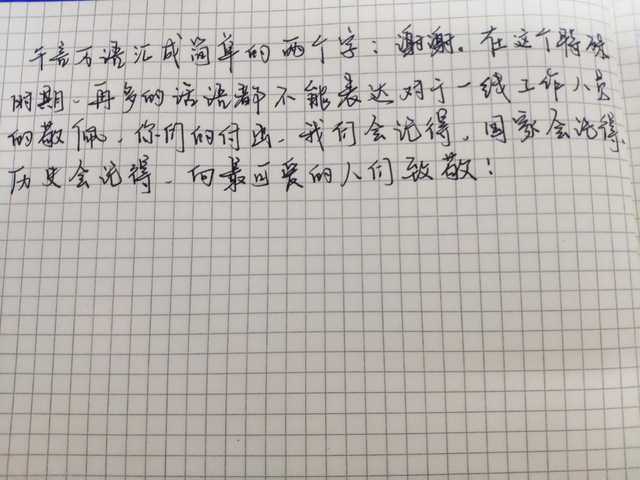 千言万语汇成简单的两个字：谢谢。在这个特殊
时期，再多的话语都不能表达对于一线工作人员
的敬佩，你们的付出，我们会记得，国家会记得，
历史会记得，向最可爱的人们致敬！